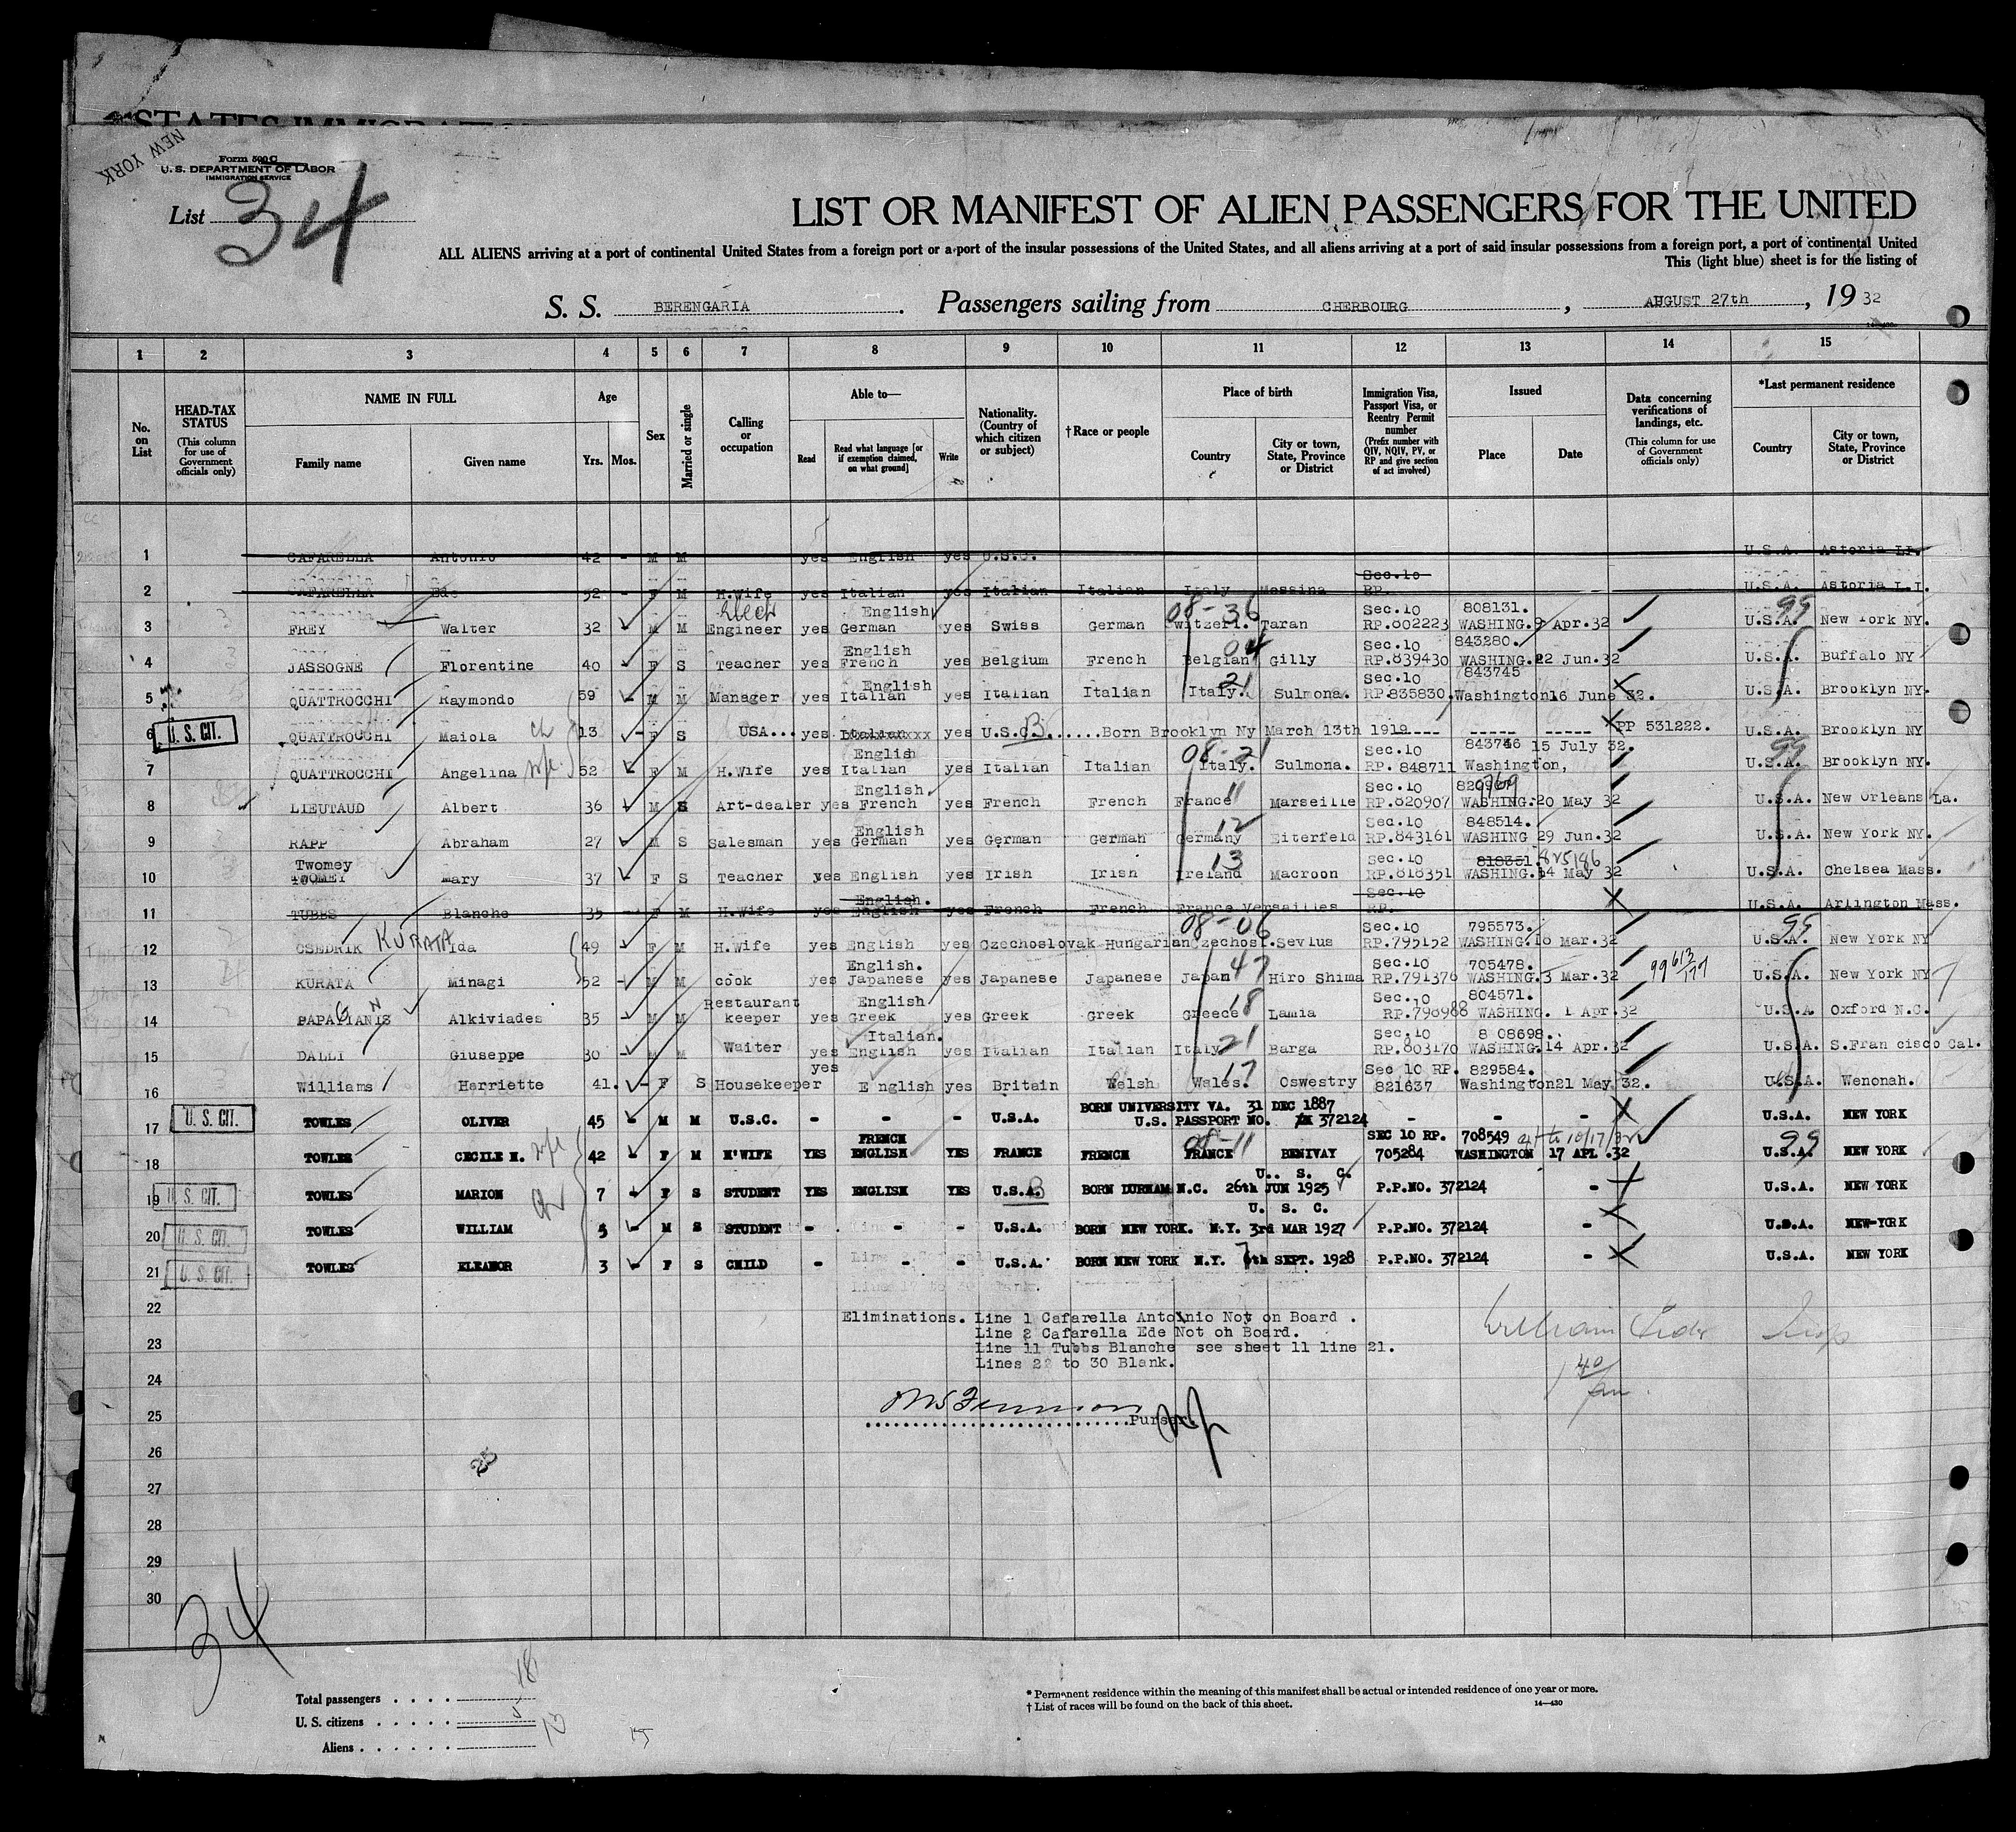 STATES IMMIGRATION
NEW YORK
Form 500 C
U. S. DEPARTMENT OF LABOR
IMMIGRATION SERVICE
List 34
LIST OR MANIFEST OF ALIEN PASSENGERS FOR THE UNITED
ALL ALIENS arriving at a port of continental United States from a foreign port or a port of the insular possessions of the United States, and all aliens arriving at a port of said insular possessions from a foreign port, a port of continental United
This (light blue) sheet is for the listing of
S. S. BERENGARIA. Passengers sailing from CHERBOURG, AUGUST 27th, 1932
1 2 3 4 5 6 7 8 9 10 11 12 13 14 15
No. on List
HEAD-TAX STATUS (This column for use of Government officials only)
NAME IN FULL Family name Given name
Age Yrs. Mos.
Sex
Married or single
Calling or occupation
Able to— Read Read what language [or if exemption claimed, on what ground] Write
Nationality. (Country of which citizen or subject)
†Race or people
Place of birth Country City or town, State, Province or District
Immigration Visa, Passport Visa, or Reentry Permit number (Prefix number with QIV, NQIV, PV, or RP and give section of act involved)
Issued Place Date
Data concerning verifications of landings, etc. (This column for use of Government officials only)
*Last permanent residence Country City or town, State, Province or District
1 CAFARELLA Antonio 42 - M M yes English yes U.S.C. U.S.A. Astoria LI.
Sec.10
2 CAFARELLA Ede 52 - F M H.Wife yes Italian yes Italian Italian Italy Messina RP. U.S.A. Astoria L.I.
Elect English 08-36 Sec.10 808131. 99
3 FREY Walter 32 M M Engineer yes German yes Swiss German Switzerl. Taran RP.802223 WASHING. 9 Apr.32 U.S.A. New York NY.
English 04 Sec.10 843280.
4 JASSOGNE Florentine 40 F S Teacher yes French yes Belgium French Belgian Gilly RP.839430 WASHING. 22 Jun.32 U.S.A. Buffalo NY
English 21 Sec.10 843745
5 QUATTROCCHI Raymondo 59 - M M Manager yes Italian yes Italian Italian Italy. Sulmona. RP.835830. Washington 16 June 32. U.S.A. Brooklyn NY.
6 U. S. CIT. QUATTROCCHI Maiola ch 13 - F S USA... yes Italian yes U.S.C. B ......Born Brooklyn Ny March 13th 1919 ---- ----- ----- PP 531222. U.S.A. Brooklyn NY
English 08-21 Sec.10 843746 15 July 32. 99
7 QUATTROCCHI Angelina wife 52 F M H.Wife yes Italian yes Italian Italian Italy. Sulmona. RP. 848711 Washington, U.S.A. Brooklyn NY.
English. 11 Sec.10 820769
8 LIEUTAUD Albert 36 M S Art-dealer yes French yes French French France Marseille RP.820907 WASHING. 20 May 32 U.S.A. New Orleans La.
English 12 Sec.10 848514.
9 RAPP Abraham 27 M S Salesman yes German yes German German Germany Eiterfeld RP.843161 WASHING 29 Jun.32 U.S.A. New York NY.
Twomey 13 Sec.10 818351. 825186
10 TWOMEY Mary 37 - F S Teacher yes English yes Irish Irish Ireland Macroon RP.818351 WASHING. 14 May 32 U.S.A. Chelsea Mass.
English. Sec.10
11 TUBBS Blanche 35 - F M H.Wife yes English yes French French France Versailles RP. U.S.A. Arlington Mass.
08-06 Sec.10 795573. 99
12 CSEDRIK KURATA Ida 49 F M H.Wife yes English yes Czechoslovak Hungarian Czechosl. Sevlus RP.795152 WASHING. 10 Mar.32 U.S.A. New York NY
English. 47 Sec.10 705478. 99 613/177
13 KURATA Minagi 52 - M M cook yes Japanese yes Japanese Japanese Japan Hiro Shima RP.791376 WASHING. 3 Mar.32 U.S.A. New York NY
G N Restaurant English 18 Sec.10 804571.
14 PAPAGIANIS Alkiviades 35 M M keeper yes Greek yes Greek Greek Greece Lamia RP.798988 WASHING. 1 Apr.32 U.S.A Oxford N.C.
Italian. 21 Sec.10 808698.
15 DALLI Giuseppe 30 - M M Waiter yes English yes Italian Italian Italy Barga RP.803170 WASHING. 14 Apr.32 U.S.A. S.Fran cisco Cal.
yes 17 Sec 10 RP. 829584.
16 Williams Harriette 41. - F S Housekeeper English yes Britain Welsh Wales. Oswestry 821637 Washington 21 May 32. U.S.A. Wenonah.
BORN UNIVERSITY VA. 31 DEC 1887
17 U. S. CIT. TOWLES OLIVER 45 - M M U.S.C. - - - U.S.A. U.S. PASSPORT NO. 372124 - - - U.S.A. NEW YORK
FRENCH 08-11 SEC 10 RP. 708549 99
18 TOWLES CECILE N. wife 42 - F M H'WIFE YES ENGLISH YES FRANCE FRENCH FRANCE BENIVAY 705284 WASHINGTON 17 APL .32 U.S.A. NEW YORK
U. S. C.
19 U. S. CIT. TOWLES MARION ch 7 - F S STUDENT YES ENGLISH YES U.S.A. B BORN DURHAM N.C. 26th JUN 1925 P.P.NO. 372124 - U.S.A. NEW YORK
U. S. C.
20 U. S. CIT. TOWLES WILLIAM 5 - M S STUDENT - - - U.S.A. BORN NEW YORK. N.Y. 3rd MAR 1927 P.P.NO. 372124 - U.S.A. NEW-YORK
21 U. S. CIT. TOWLES ELEANOR 3 - F S CHILD - - - U.S.A. BORN NEW YORK N.Y. 7th SEPT. 1928 P.P.NO. 372124 - U.S.A. NEW YORK
22 Eliminations. Line 1 Cafarella Antoinio Not on Board .
Line 2 Cafarella Ede Not on Board.
23 Line 11 Tubbs Blanche see sheet 11 line 21.
Lines 22 to 30 Blank.
24
25 Purser.
26
27
28
29
30
34
Total passengers . . . . 18
U. S. citizens . . . . . 5
Aliens . . . . . . 13
* Permanent residence within the meaning of this manifest shall be actual or intended residence of one year or more.
† List of races will be found on the back of this sheet. 14—430